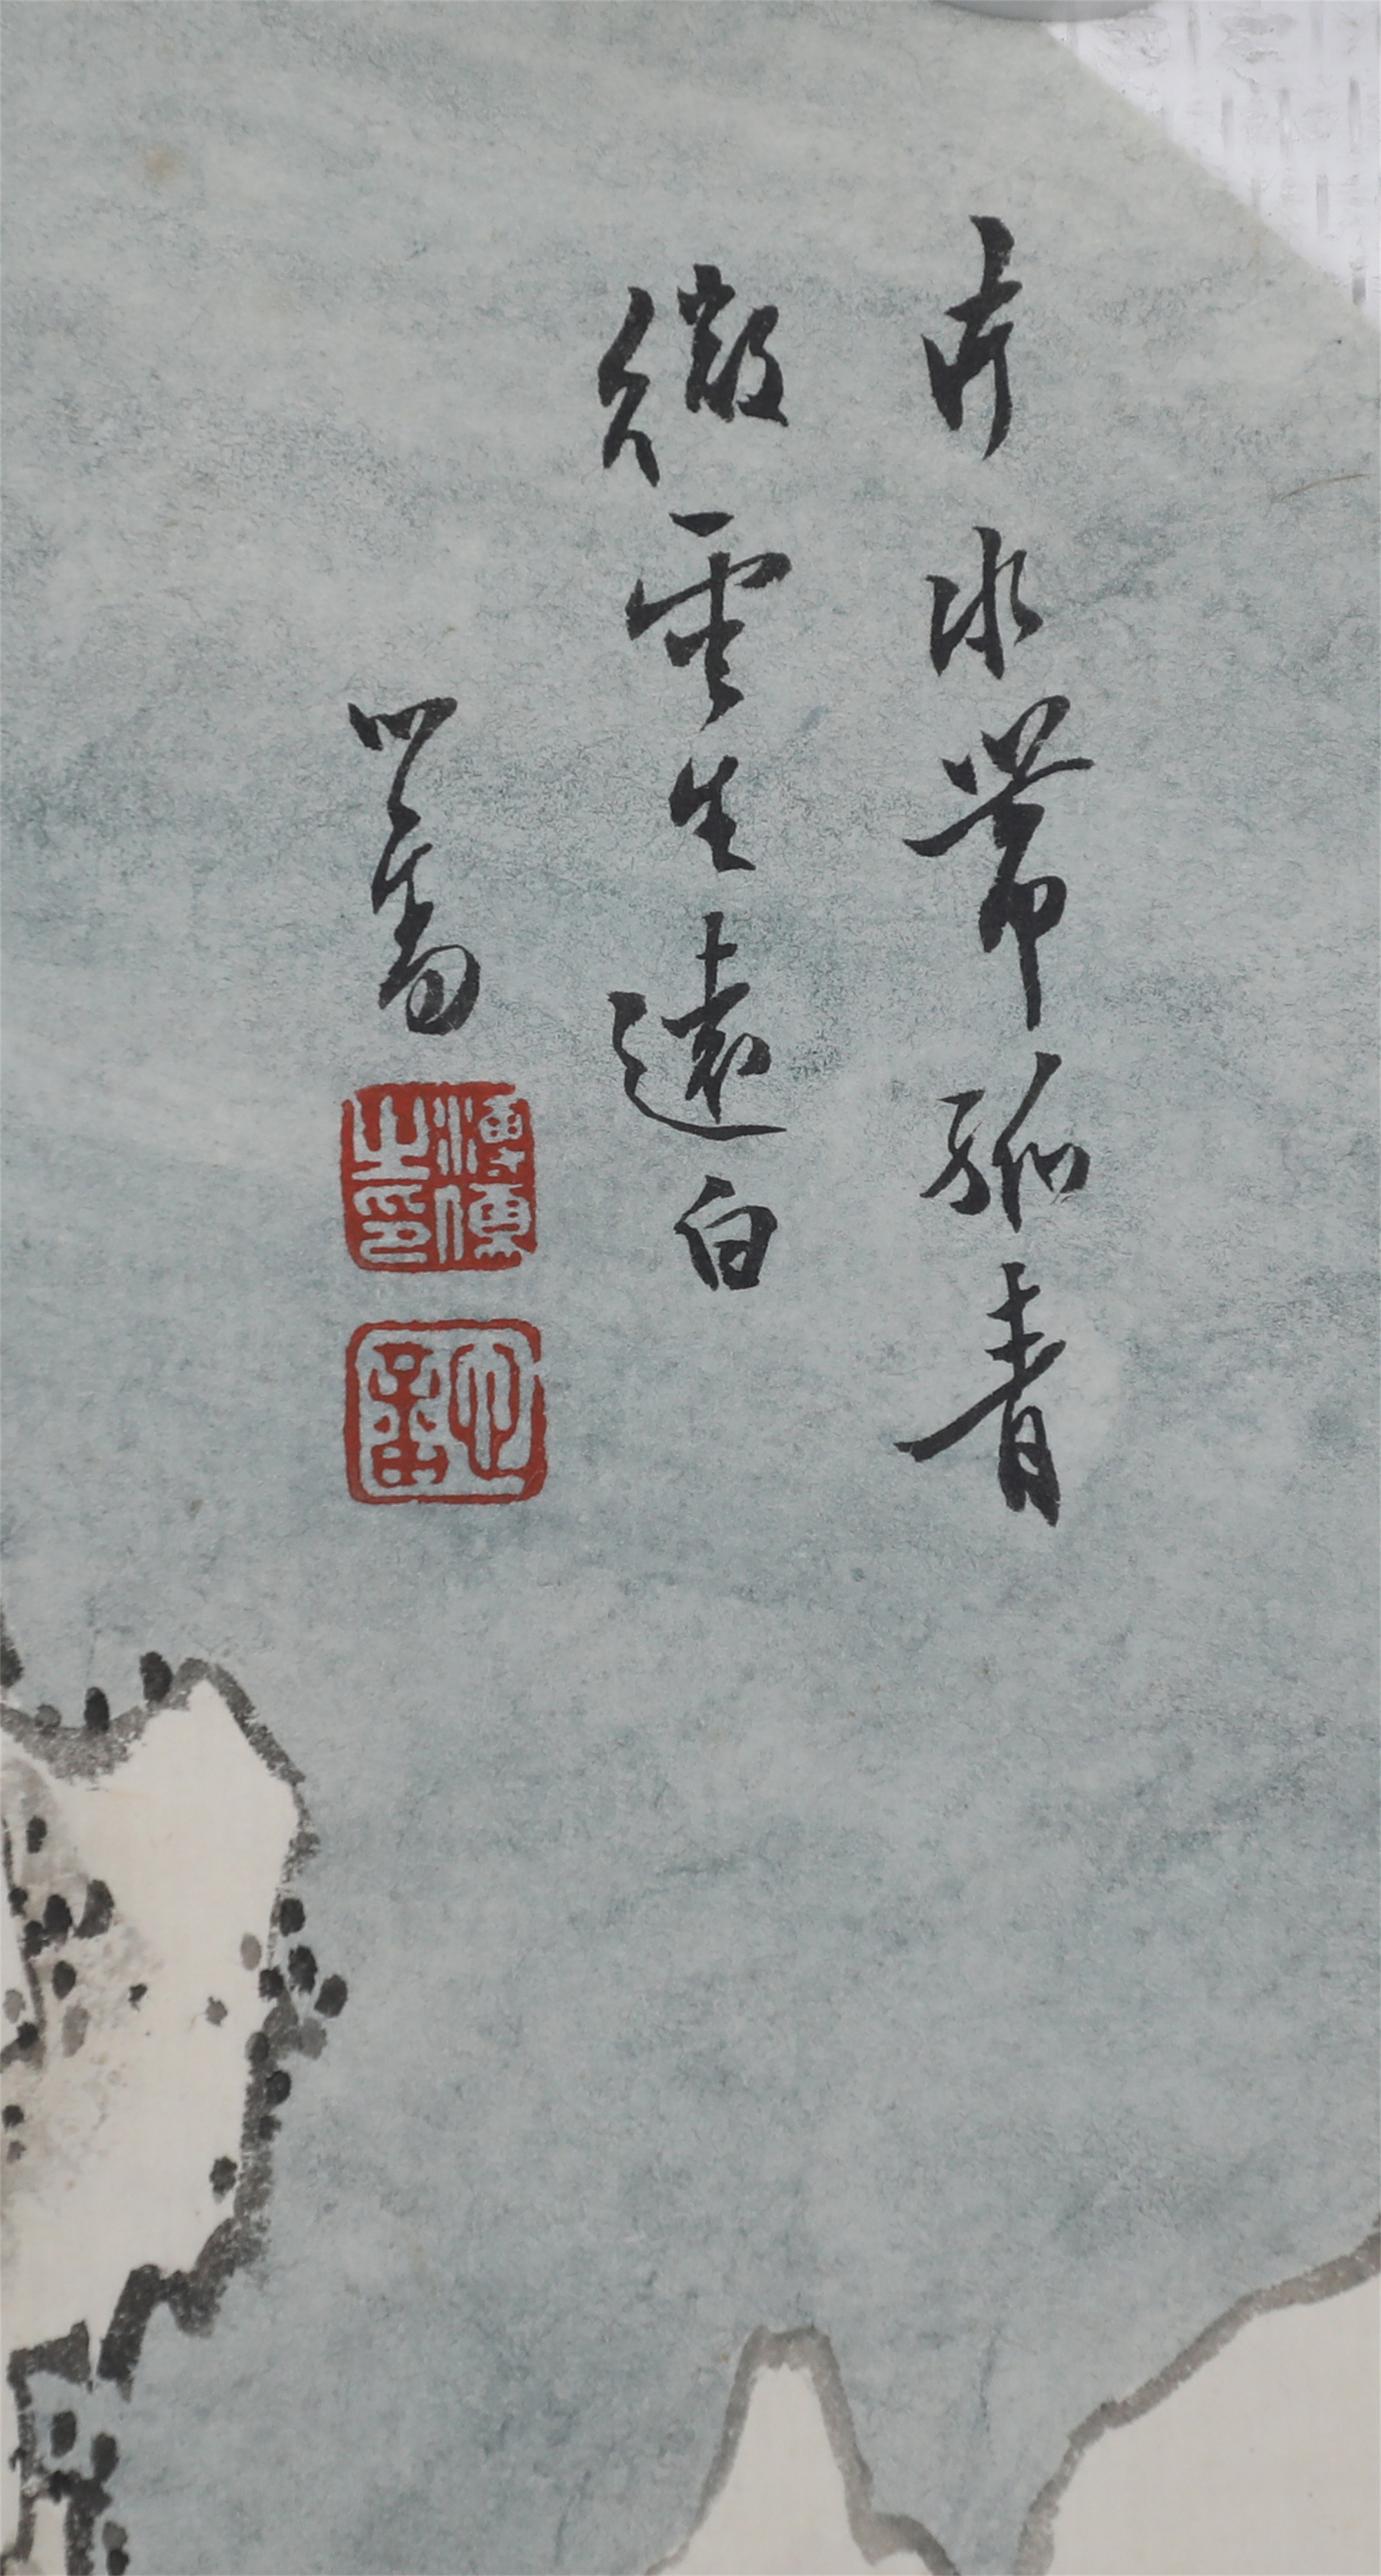 片水帶孤青
微雲生遠白
心畬
溥儒之印
心畬